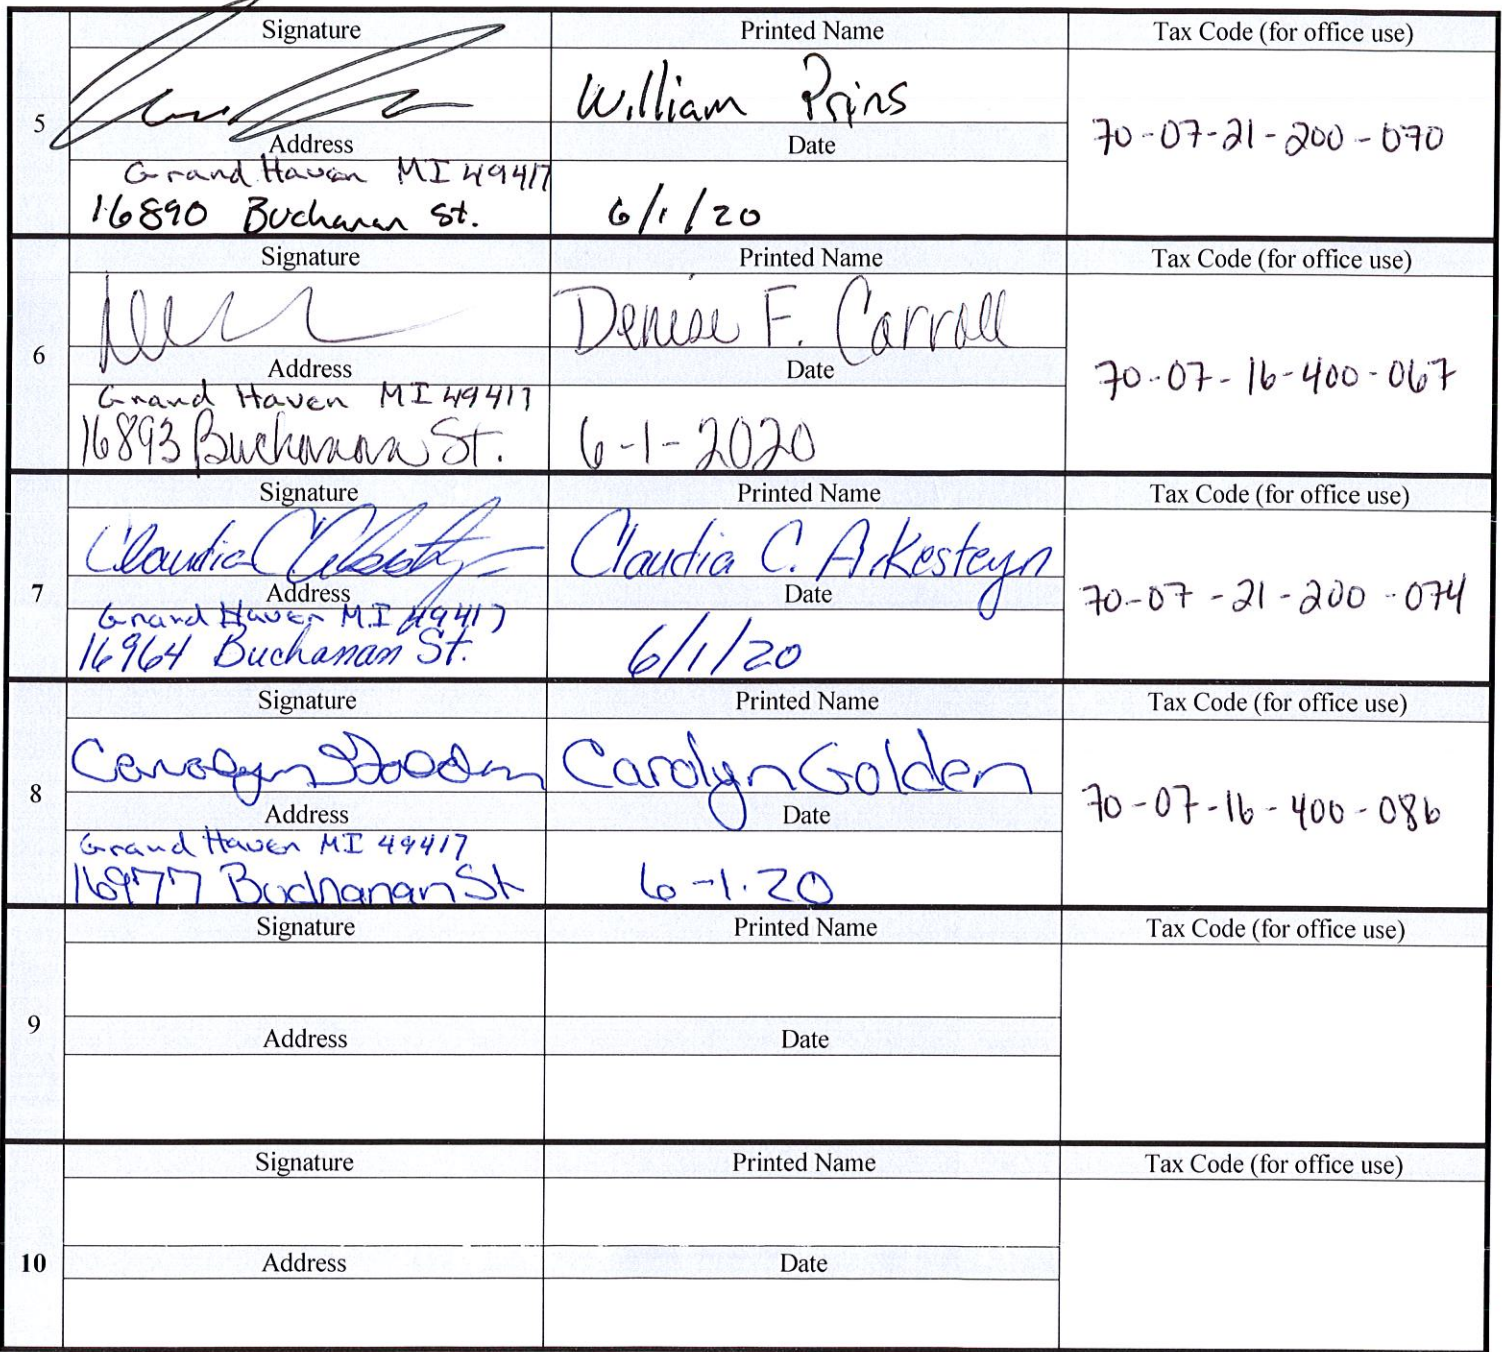 Signature Printed Name Tax Code (for office use)
5
William Prins
70-07-21-200-070
Address Date
Grand Haven MI 49417
16890 Buchanan St. 6/1/20
Signature Printed Name Tax Code (for office use)
6
Denise F. Carroll
70-07-16-400-067
Address Date
Grand Haven MI 49417
16893 Buchanan St. 6-1-2020
Signature Printed Name Tax Code (for office use)
7
Claudia C. Claudia C. A.Kesteyn
70-07-21-200-074
Address Date
Grand Haven MI 49417
16964 Buchanan St. 6/1/20
Signature Printed Name Tax Code (for office use)
8
Carolyn Golden Carolyn Golden
70-07-16-400-086
Address Date
Grand Haven MI 49417
16977 Buchanan St 6-1.20
Signature Printed Name Tax Code (for office use)
9
Address Date
Signature Printed Name Tax Code (for office use)
10
Address Date